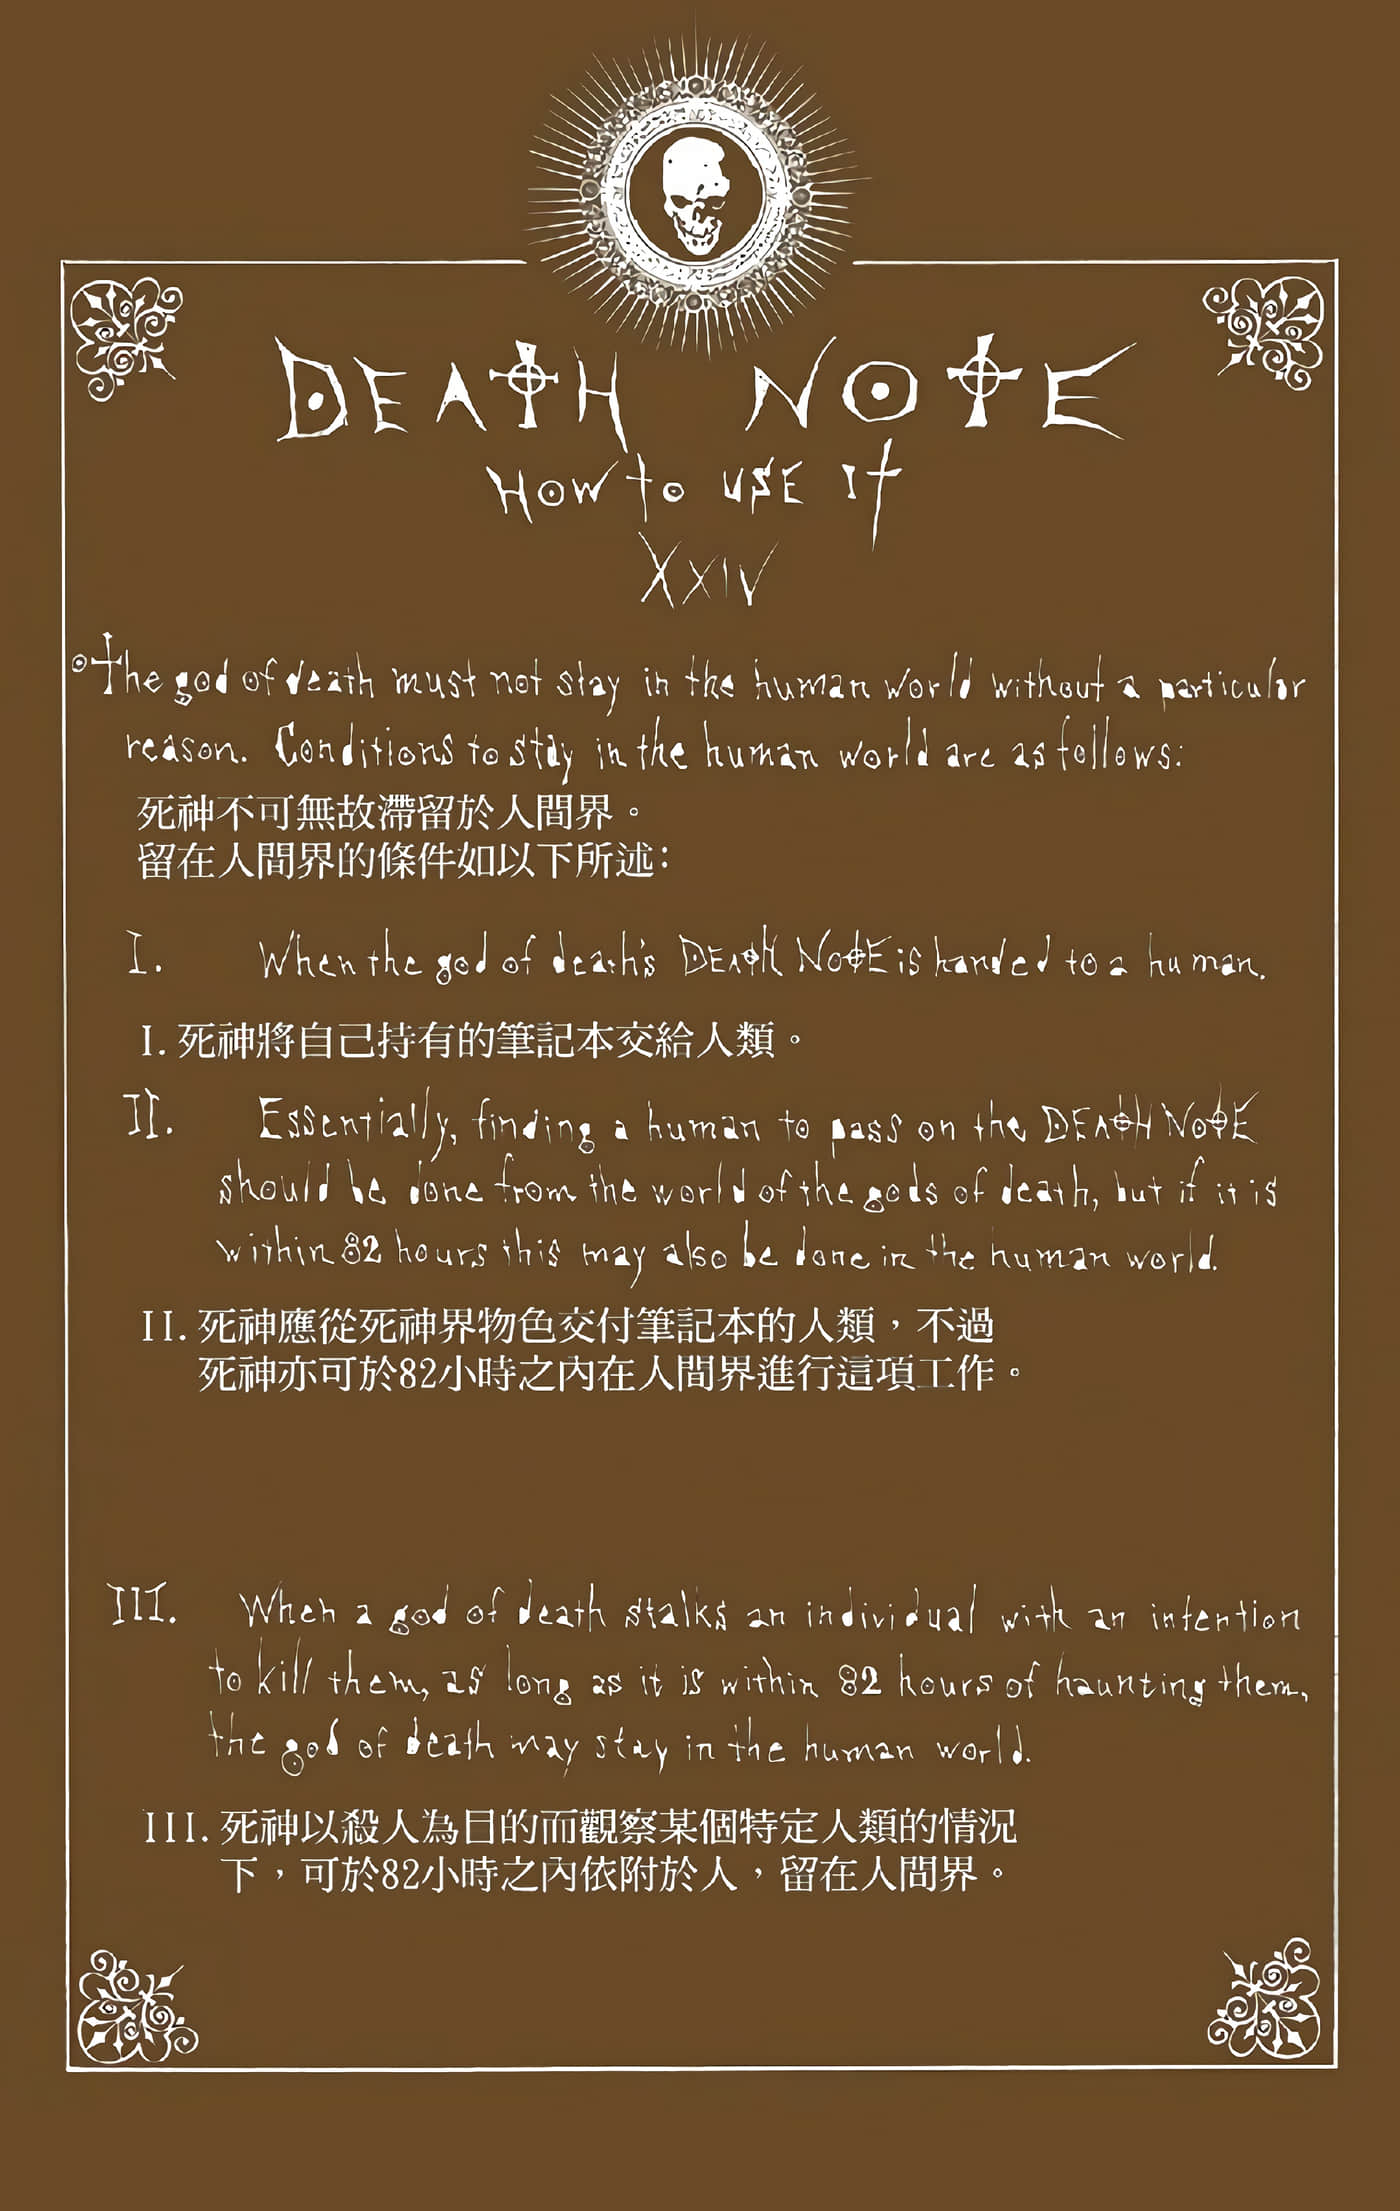 DEATH NOTE
How to use it
XXIV
The god of death must not stay in the human world without a particular
reason. Conditions to stay in the human world are as follows:
死神不可無故滯留於人間界。
留在人間界的條件如以下所述：
I. When the god of death's DEATH NOTE is handed to a human.
I. 死神將自己持有的筆記本交給人類。
II. Essentially, finding a human to pass on the DEATH NOTE
should be done from the world of the gods of death, but if it is
within 82 hours this may also be done in the human world.
II. 死神應從死神界物色交付筆記本的人類，不過
死神亦可於82小時之內在人間界進行這項工作。
III. When a god of death stalks an individual with an intention
to kill them, as long as it is within 82 hours of haunting them,
the god of death may stay in the human world.
III. 死神以殺人為目的而觀察某個特定人類的情況
下，可於82小時之內依附於人，留在人間界。